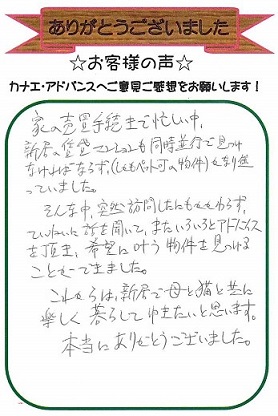 ありがとうございました
☆お客様の声☆
カナエ・アドバンスへご意見ご感想をお願いします!
家の売買手続きで忙しい中、
新居の賃貸マンションも同時並行で見つけ
なければならず、(しかもペット可の物件)
っていました。
そんな中、突然訪問したにもかかわらず、
ていねいに話を聞いて、またいろいろとアドバイス
を頂き、希望に叶う物件を見つける
ことができました。
これからは、新居で母と猫と共に
楽しく暮らしてゆきたいと思います。
本当にありがとうございました。